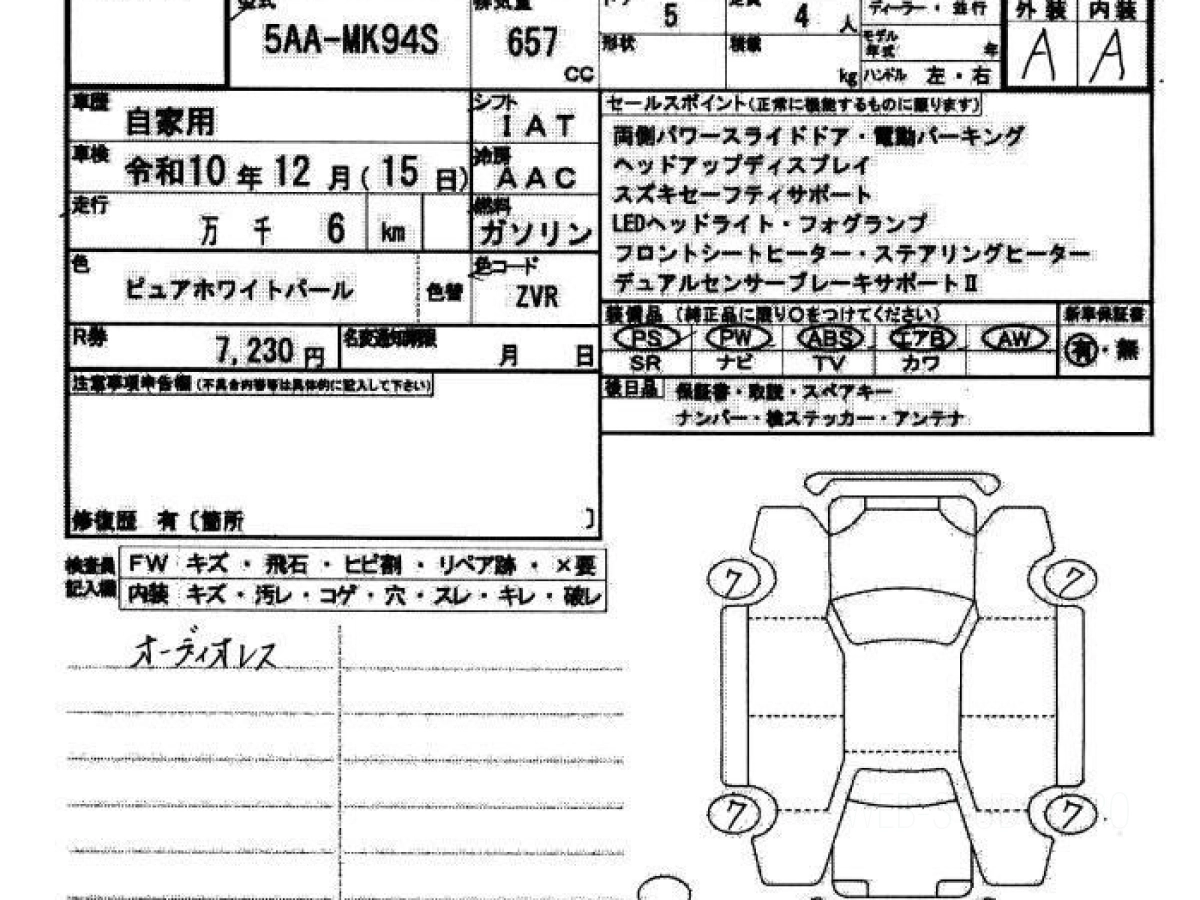 型式 排気量 5 4 人 ディーラー・並行 外装 内装
5AA-MK94S 657 CC 形状 積載 kg モデル年式 年 A A
ハンドル 左・右
車歴 自家用 シフト IAT
車検 令和10年12月(15日) 冷房 AAC
走行 万 千 6 km 燃料 ガソリン
色 ピュアホワイトパール 色替 色コード ZVR
R券 7,230円 名変通知期限 月 日
注意事項申告欄(不具合内容等は具体的に記入して下さい)
修復歴 有〔箇所 〕
セールスポイント(正常に機能するものに限ります)
両側パワースライドドア・電動パーキング
ヘッドアップディスプレイ
スズキセーフティサポート
LEDヘッドライト・フォグランプ
フロントシートヒーター・ステアリングヒーター
デュアルセンサーブレーキサポートⅡ
装備品(純正品に限り○をつけてください) 新車保証書
PS PW ABS エアB AW 有・無
SR ナビ TV カワ
後日品 保証書・取説・スペアキー
ナンバー・検ステッカー・アンテナ
検査員記入欄 FW キズ・飛石・ヒビ割・リペア跡・×要
内装 キズ・汚レ・コゲ・穴・スレ・キレ・破レ
オーディオレス
7 7
7 7